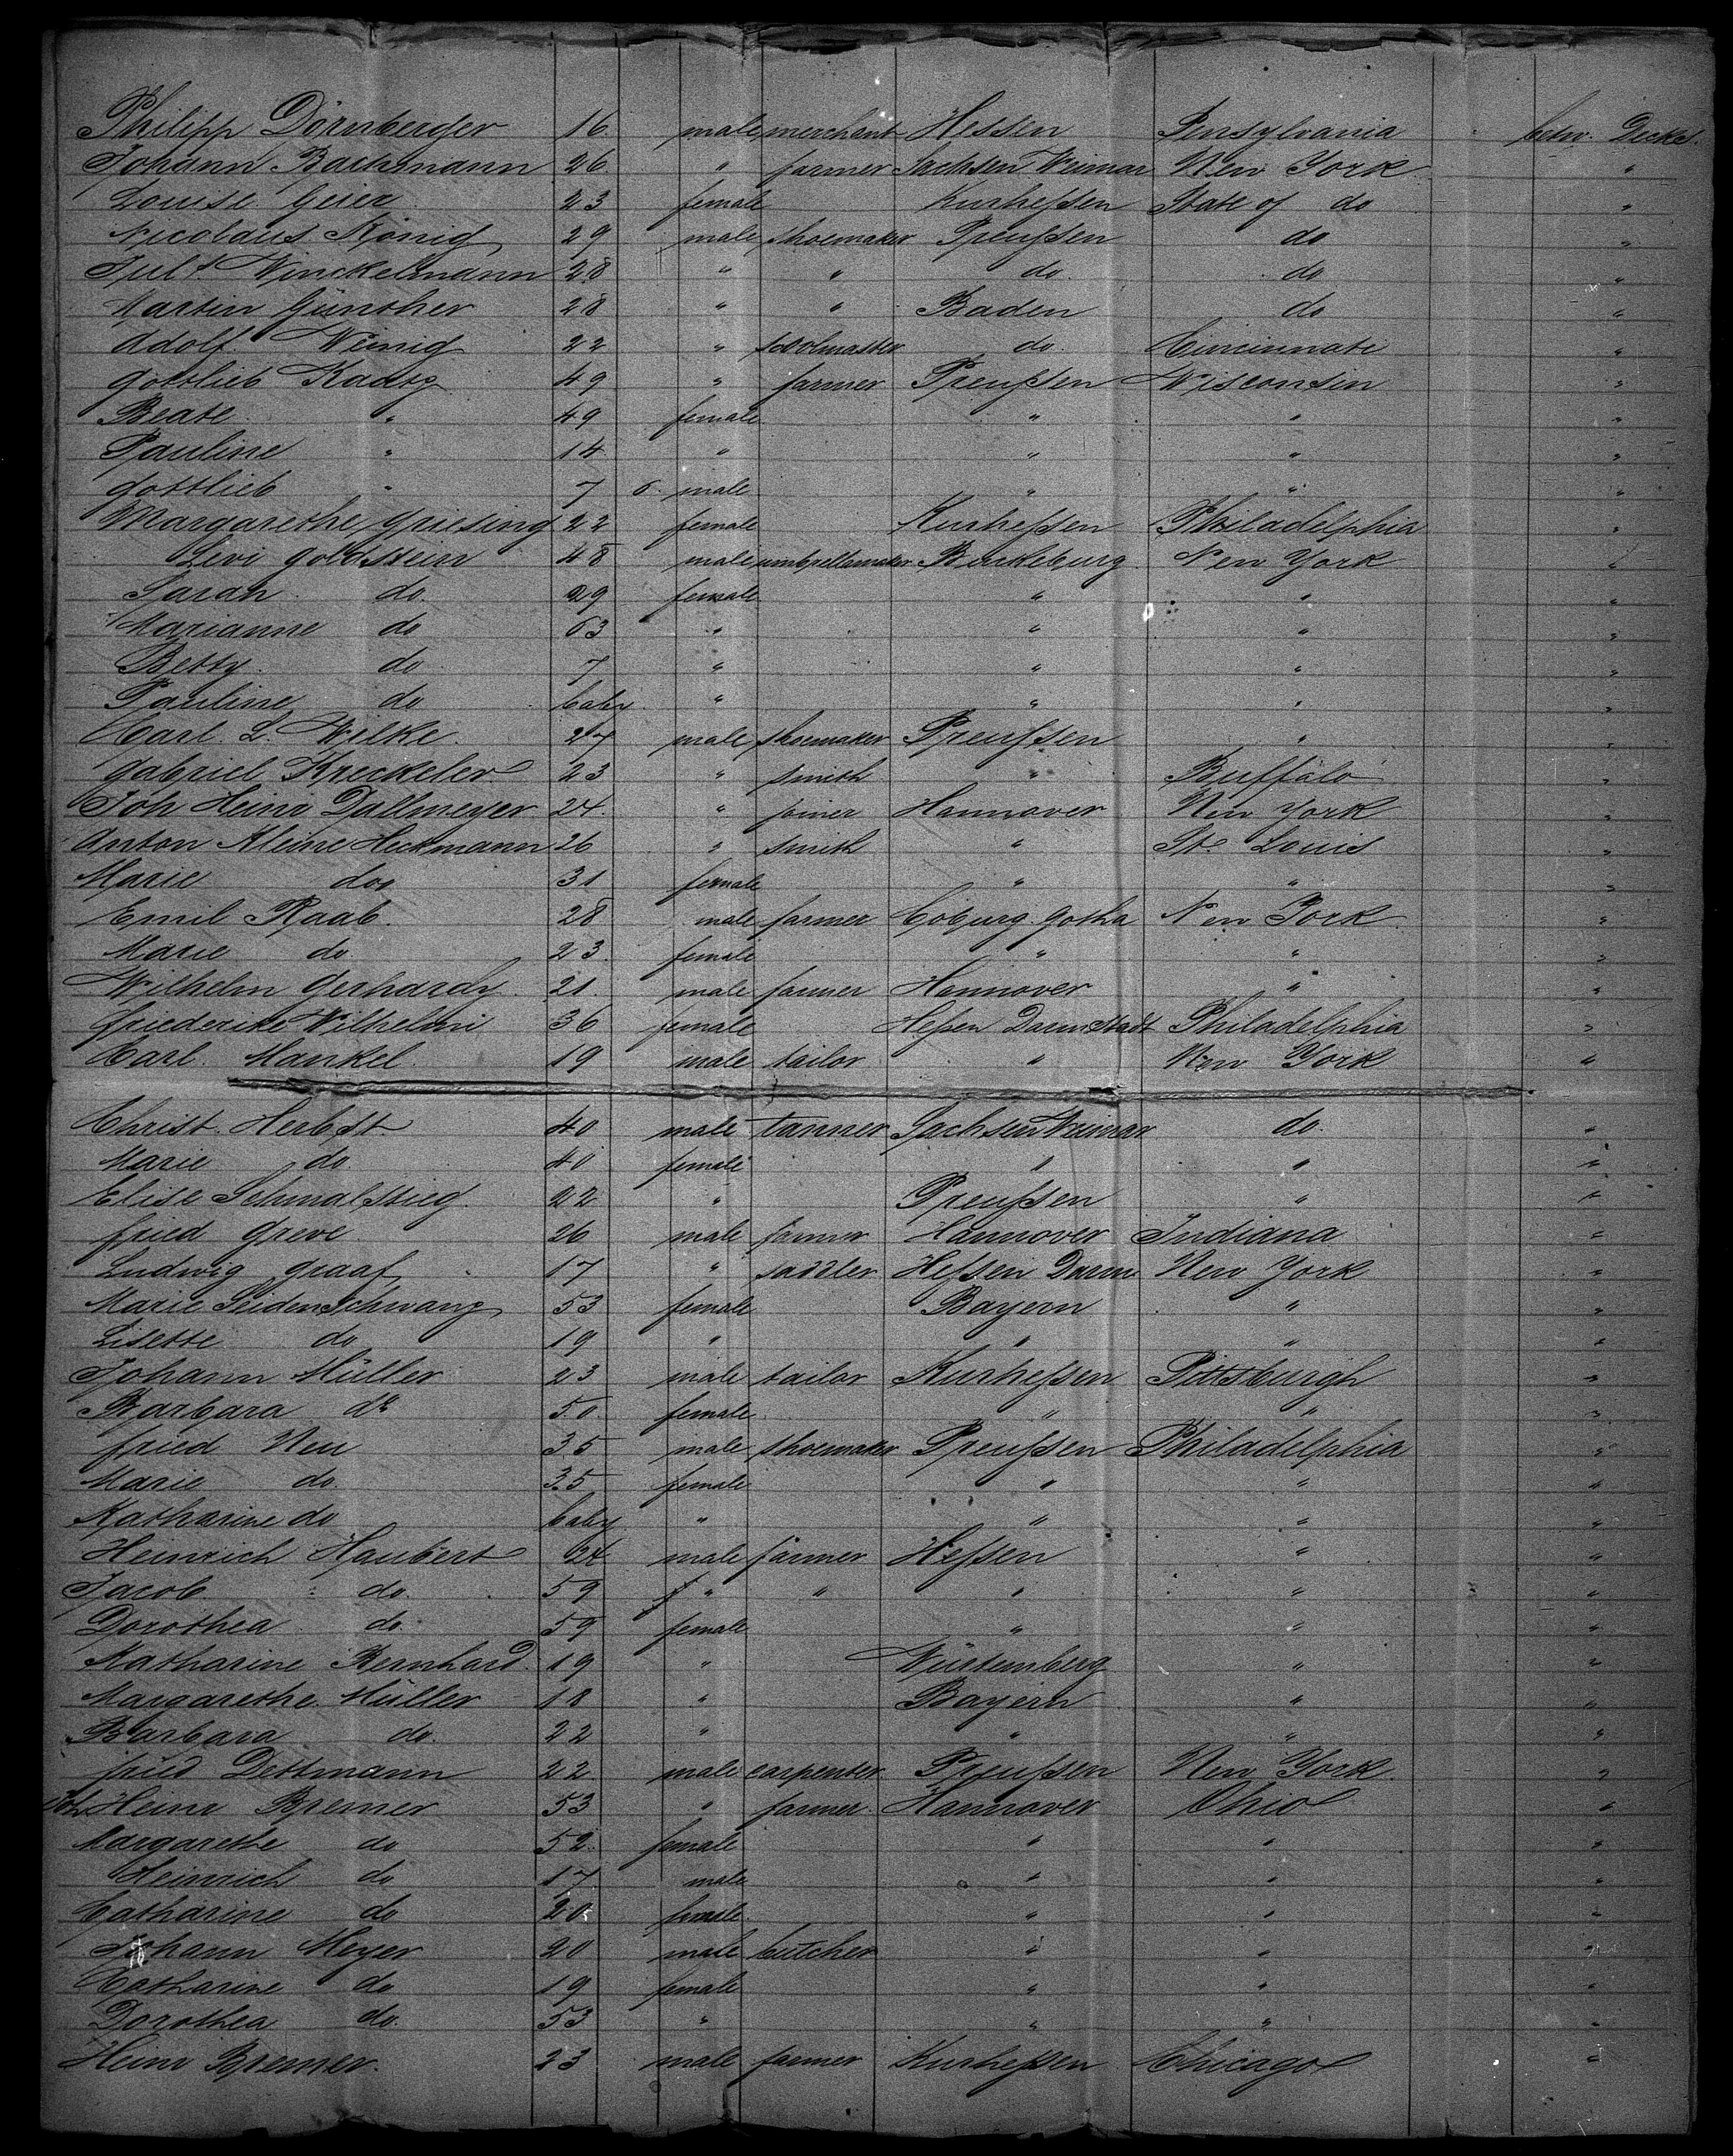 Philipp Dörnberger 16 male merchant Hessen Pensylvania betw. Deckes.
Johann Bachmann 26 " farmer Sachsen Weimar New York "
Louise Geier 23 female Kurheßen State of do "
Nicolaus König 29 male shoemaker Preußen do "
Winckelmann 28 " " do do "
Martin Günther 28 " " Baden do "
Adolf 22 " do Cincinnati "
Gottlieb 49 " farmer Preußen Wisconsin "
Beate " 49 female " " "
Pauline " 14 " " " "
Gottlieb " 7 male " " "
Margarethe Griesing 22 female Kurheßen Philadelphia "
Levi Goldstein 48 male umbrellamaker Bückeburg New York "
Sarah do 29 female " " "
Marianne do 63 " " " "
Betty do 7 " " " "
Pauline do baby " " " "
Carl L. Wilke 27 male shoemaker Preußen " "
Gabriel Kreckeler 23 " smith " Buffalo "
Joh Heinr Dallmeyer 24 " joiner Hannover New York "
Anton Kleine Heckmann 26 " smith " St. Louis "
Marie do 31 female " " "
Emil Raab 28 male farmer Coburg Gotha New York "
Marie do 23 female " " "
Wilhelm Gerhardy 21 male farmer Hannover " "
Friederike Wilhelmi 36 female Heßen Darmstadt Philadelphia "
Carl Mankel 19 male tailor " New York "
Christ. Herbst 40 male tanner Sachsen Weimar do "
Marie do 40 female " " "
Elise Schmalstieg 22 " Preußen " "
Fried Greve 26 male farmer Hannover Indiana "
Ludwig Graaf 17 " saddler Heßen Darm New York "
Marie Seidenschwang 53 female Bayern " "
Lisette do 19 " " " "
Johann Müller 23 male tailor Kurheßen Pittsburgh "
Barbara do 50 female " " "
Fried Neu 35 male shoemaker Preußen Philadelphia "
Marie do 35 female " " "
Katharine do baby " " " "
Heinrich Haubert 24 male farmer Heßen " "
Jacob do 59 " " " " "
Dorothea do 59 female " " "
Katharine Bernhard 19 " Würtemberg " "
Margarethe Müller 18 " Bayern " "
Barbara do 22 " " " "
Fried Dettmann 22 male carpenter Preußen New York "
Joh Heinr Bremer 53 " farmer Hannover Ohio "
Margarethe do 52 female " " "
Heinrich do 17 male " " "
Catharine do 20 female " " "
Johann Meyer 20 male butcher " " "
Catharine do 19 female " " "
Dorothea do 53 " " " "
Heinr Bremer 23 male farmer Kurheßen Chicago "